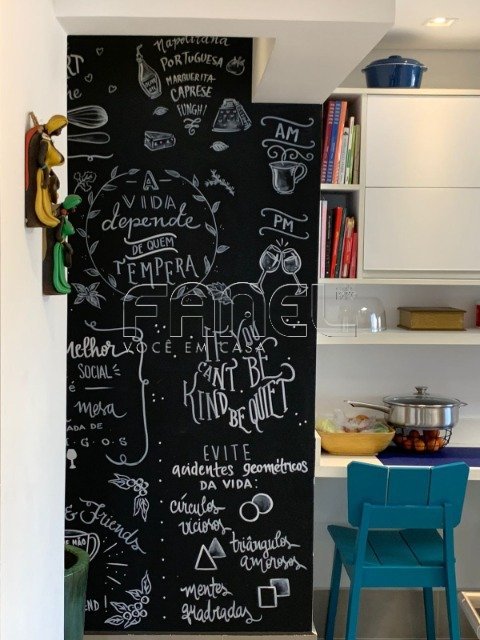 Napolitana
PORTUGUESA
MARGUERITA
CAPRESE
FUNGHI
AM
PM
A
VIDA
depende
DE QUEM
TEMPERA
FANELI
VOCÊ EM CASA
IF YOU
CAN'T BE
KIND BE QUIET
Melhor
SOCIAL
é
mesa
& Friends
EVITE
acidentes geométricos
DA VIDA:
círculos
viciosos
triângulos
amorosos
mentes
quadradas